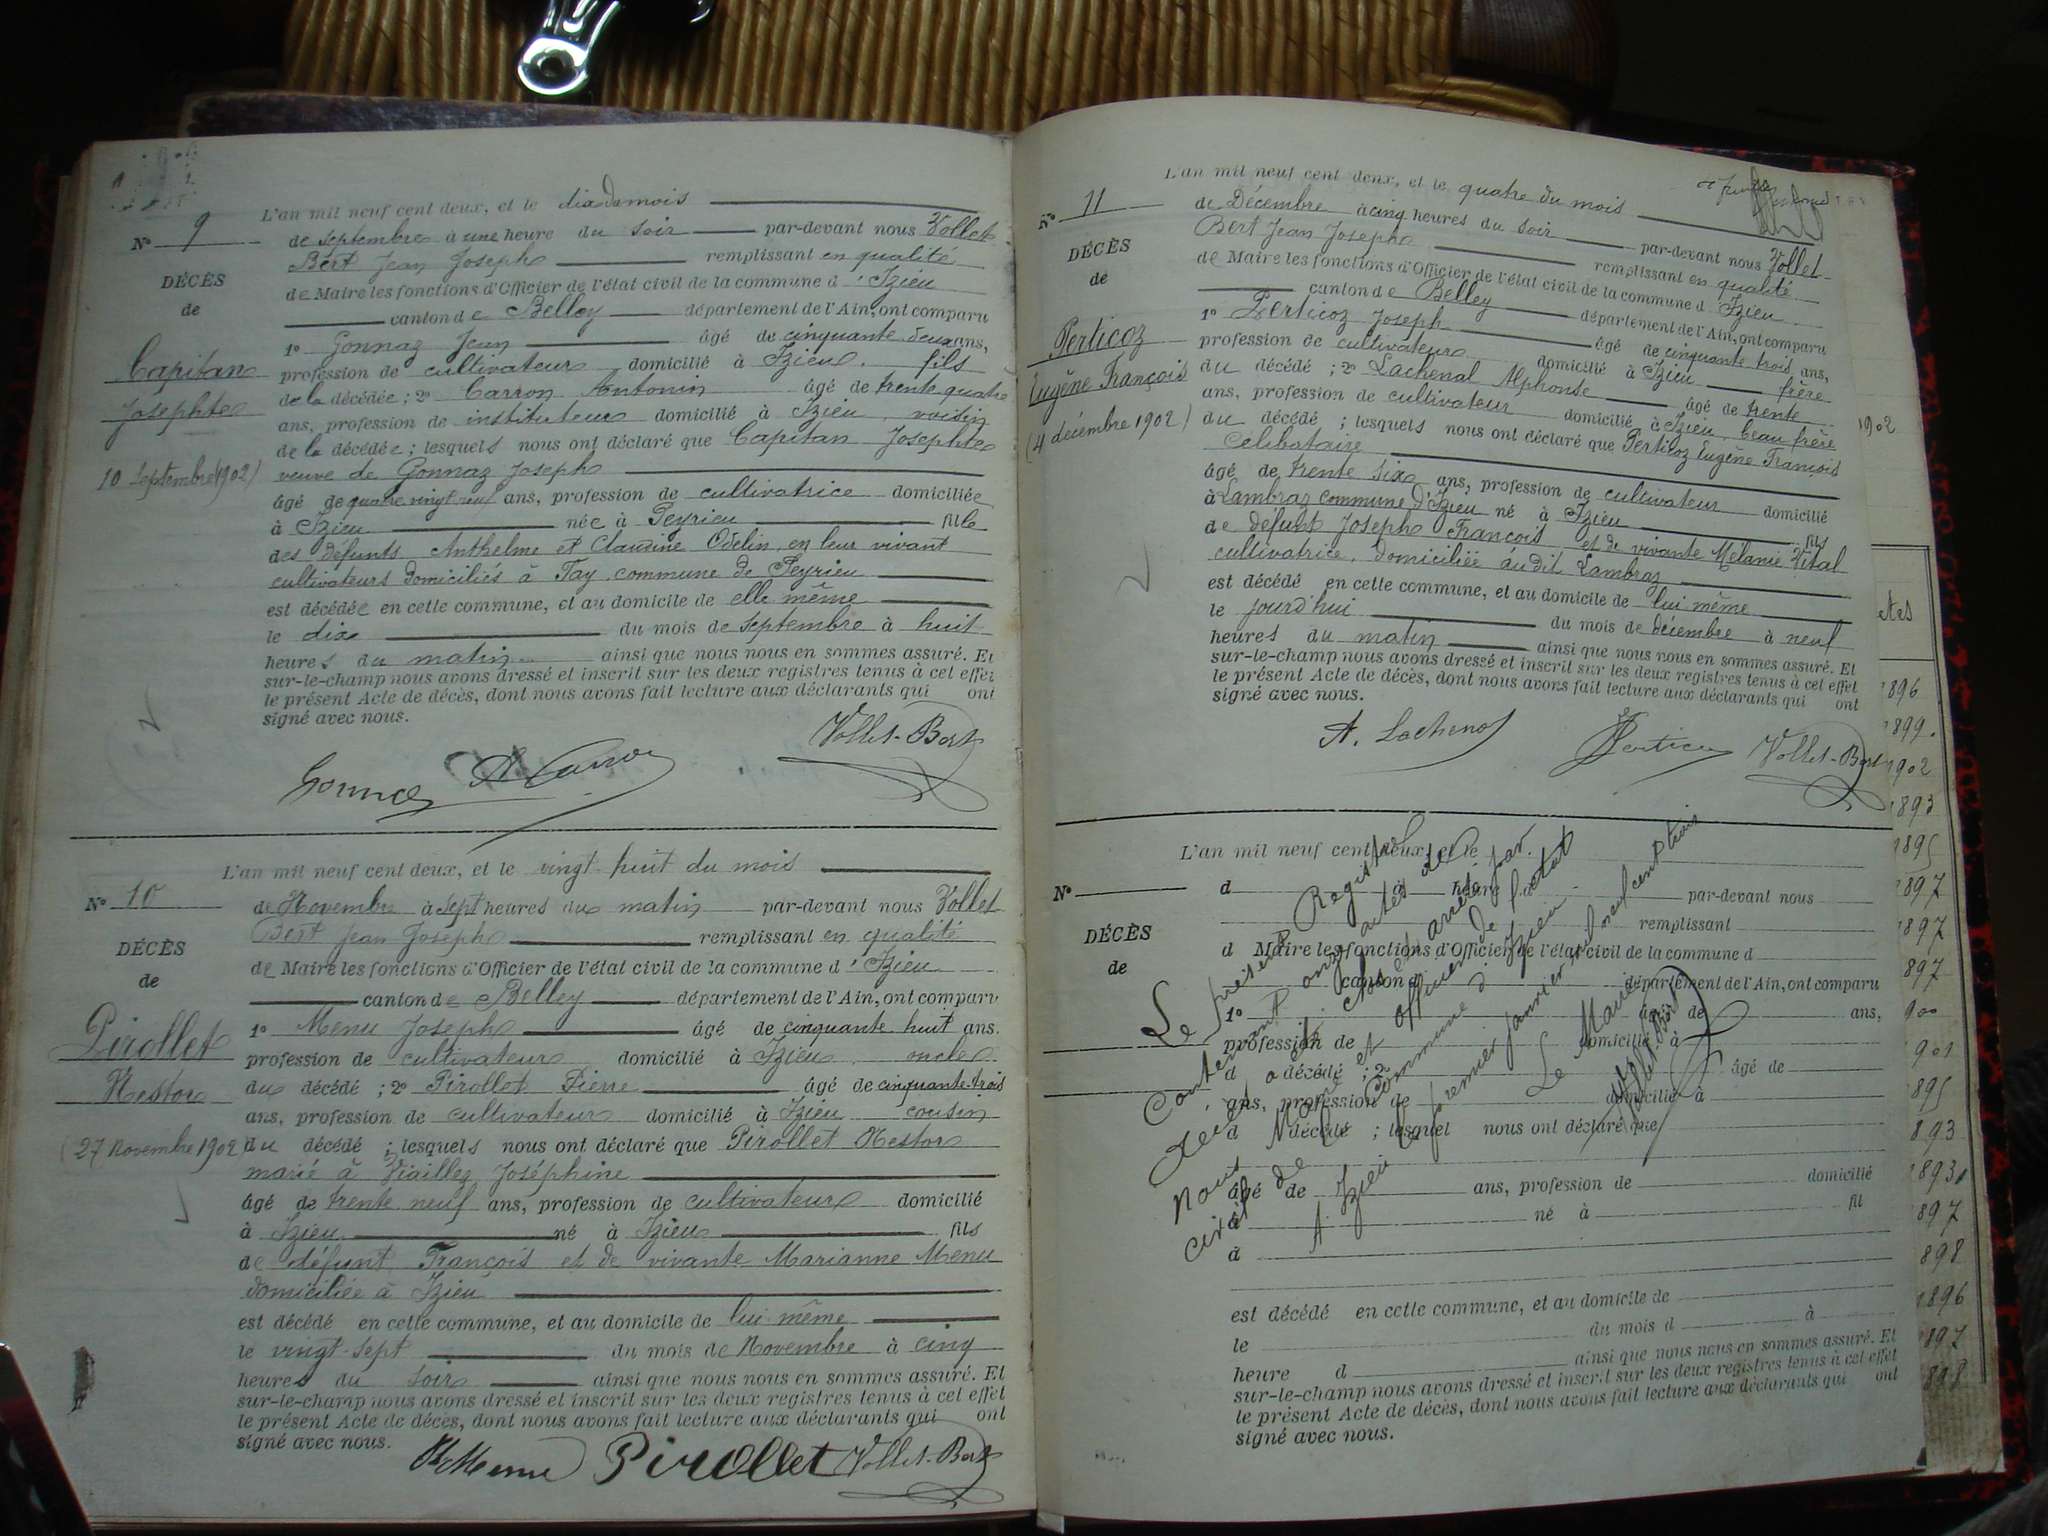 L'an mil neuf cent deux, et le dix du mois
N° 9
de septembre à une heure du soir par-devant nous Vollet
Bert Jean Joseph remplissant en qualité
DÉCÈS
de Maire les fonctions d'Officier de l'état civil de la commune d'Izieu
de
canton de Belley département de l'Ain, ont comparu
1° Gonnaz Jean âgé de cinquante deux ans,
Capitan
profession de cultivateur domicilié à Izieu fils
Josephte
de la décédée ; 2° Carron Antonin âgé de trente quatre
ans, profession de instituteur domicilié à Izieu voisin
de la décédée ; lesquels nous ont déclaré que Capitan Josephte
10 Septembre 1902)
veuve de Gonnaz Joseph
âgé de quatre vingt neuf ans, profession de cultivatrice domiciliée
à Izieu née à Peyrieu fille
des défunts Anthelme et Claudine Odelin, en leur vivant
cultivateurs domiciliés à Fay, commune de Peyrieu
est décédée en cette commune, et au domicile de elle même
le dix du mois de septembre à huit
heures du matin ainsi que nous nous en sommes assuré. Et
sur-le-champ nous avons dressé et inscrit sur les deux registres tenus à cet effet
le présent Acte de décès, dont nous avons fait lecture aux déclarants qui ont
signé avec nous.
Vollet-Bert
Gonnaz A Carron
L'an mil neuf cent deux, et le vingt huit du mois
N° 10
de Novembre à sept heures du matin par-devant nous Vollet
Bert Jean Joseph remplissant en qualité
DÉCÈS
de Maire les fonctions d'Officier de l'état civil de la commune d'Izieu
de
canton de Belley département de l'Ain, ont comparu
1° Menu Joseph âgé de cinquante huit ans.
Pirollet
profession de cultivateur domicilié à Izieu oncle
Nestor
du décédé ; 2° Pirollet Pierre âgé de cinquante-trois
ans, profession de cultivateur domicilié à Izieu cousin
(27 Novembre 1902
du décédé ; lesquels nous ont déclaré que Pirollet Nestor
marié à Viaillez Joséphine
âgé de trente neuf ans, profession de cultivateur domicilié
à Izieu né à Izieu fils
de défunt François et de vivante Marianne Menu
domiciliée à Izieu
est décédé en cette commune, et au domicile de lui même
le vingt-sept du mois de Novembre à cinq
heures du soir ainsi que nous nous en sommes assuré. Et
sur-le-champ nous avons dressé et inscrit sur les deux registres tenus à cet effet
le présent Acte de décès, dont nous avons fait lecture aux déclarants qui ont
signé avec nous.
Menu Pirollet Vollet-Bert
L'an mil neuf cent deux, et le quatre du mois
N° 11
de Décembre à cinq heures du soir par-devant nous Vollet
Bert Jean Joseph remplissant en qualité
DÉCÈS
de Maire les fonctions d'Officier de l'état civil de la commune d'Izieu
de
canton de Belley département de l'Ain, ont comparu
1° Perticoz Joseph âgé de cinquante trois ans,
Perticoz
profession de cultivateur domicilié à Izieu frère
Eugène François
du décédé ; 2° Lachenal Alphonse âgé de trente
ans, profession de cultivateur domicilié à Izieu, beau frère
(4 décembre 1902)
du décédé ; lesquels nous ont déclaré que Perticoz Eugène François
célibataire
âgé de trente six ans, profession de cultivateur domicilié
à Lambraz commune d'Izieu né à Izieu fils
de défunt Joseph François et de vivante Mélanie Vital
cultivatrice, domiciliée audit Lambraz
est décédé en cette commune, et au domicile de lui même
le jourd'hui du mois de décembre à neuf
heures du matin ainsi que nous nous en sommes assuré. Et
sur-le-champ nous avons dressé et inscrit sur les deux registres tenus à cet effet
le présent Acte de décès, dont nous avons fait lecture aux déclarants qui ont
signé avec nous.
A. Lachenal Perticoz Vollet-Bert
L'an mil neuf cent deux, et le
N°
d à heure d par-devant nous
remplissant
DÉCÈS
d Maire les fonctions d'Officier de l'état civil de la commune d
de
canton d département de l'Ain, ont comparu
1° âgé de ans,
profession de domicilié à
d décédé ; 2° âgé de
ans, profession de domicilié à
d décédé ; lesquel nous ont déclaré que
âgé de ans, profession de domicilié
à né à fil
à
est décédé en cette commune, et au domicile de
le du mois d à
heure d ainsi que nous nous en sommes assuré. Et
sur-le-champ nous avons dressé et inscrit sur les deux registres tenus à cet effet
le présent Acte de décès, dont nous avons fait lecture aux déclarants qui ont
signé avec nous.
Le présent Registre
contenant onze actes de
décès a été clos et arrêté par
Nous Maire et officier de l'état
civil de la commune d'Izieu
A Izieu le premier janvier mil neuf cent trois
Le Maire
Vollet-Bert
1902
1896
1899
1902
1893
1895
1897
1897
897
900
901
895
893
1893
897
898
1896
897
898